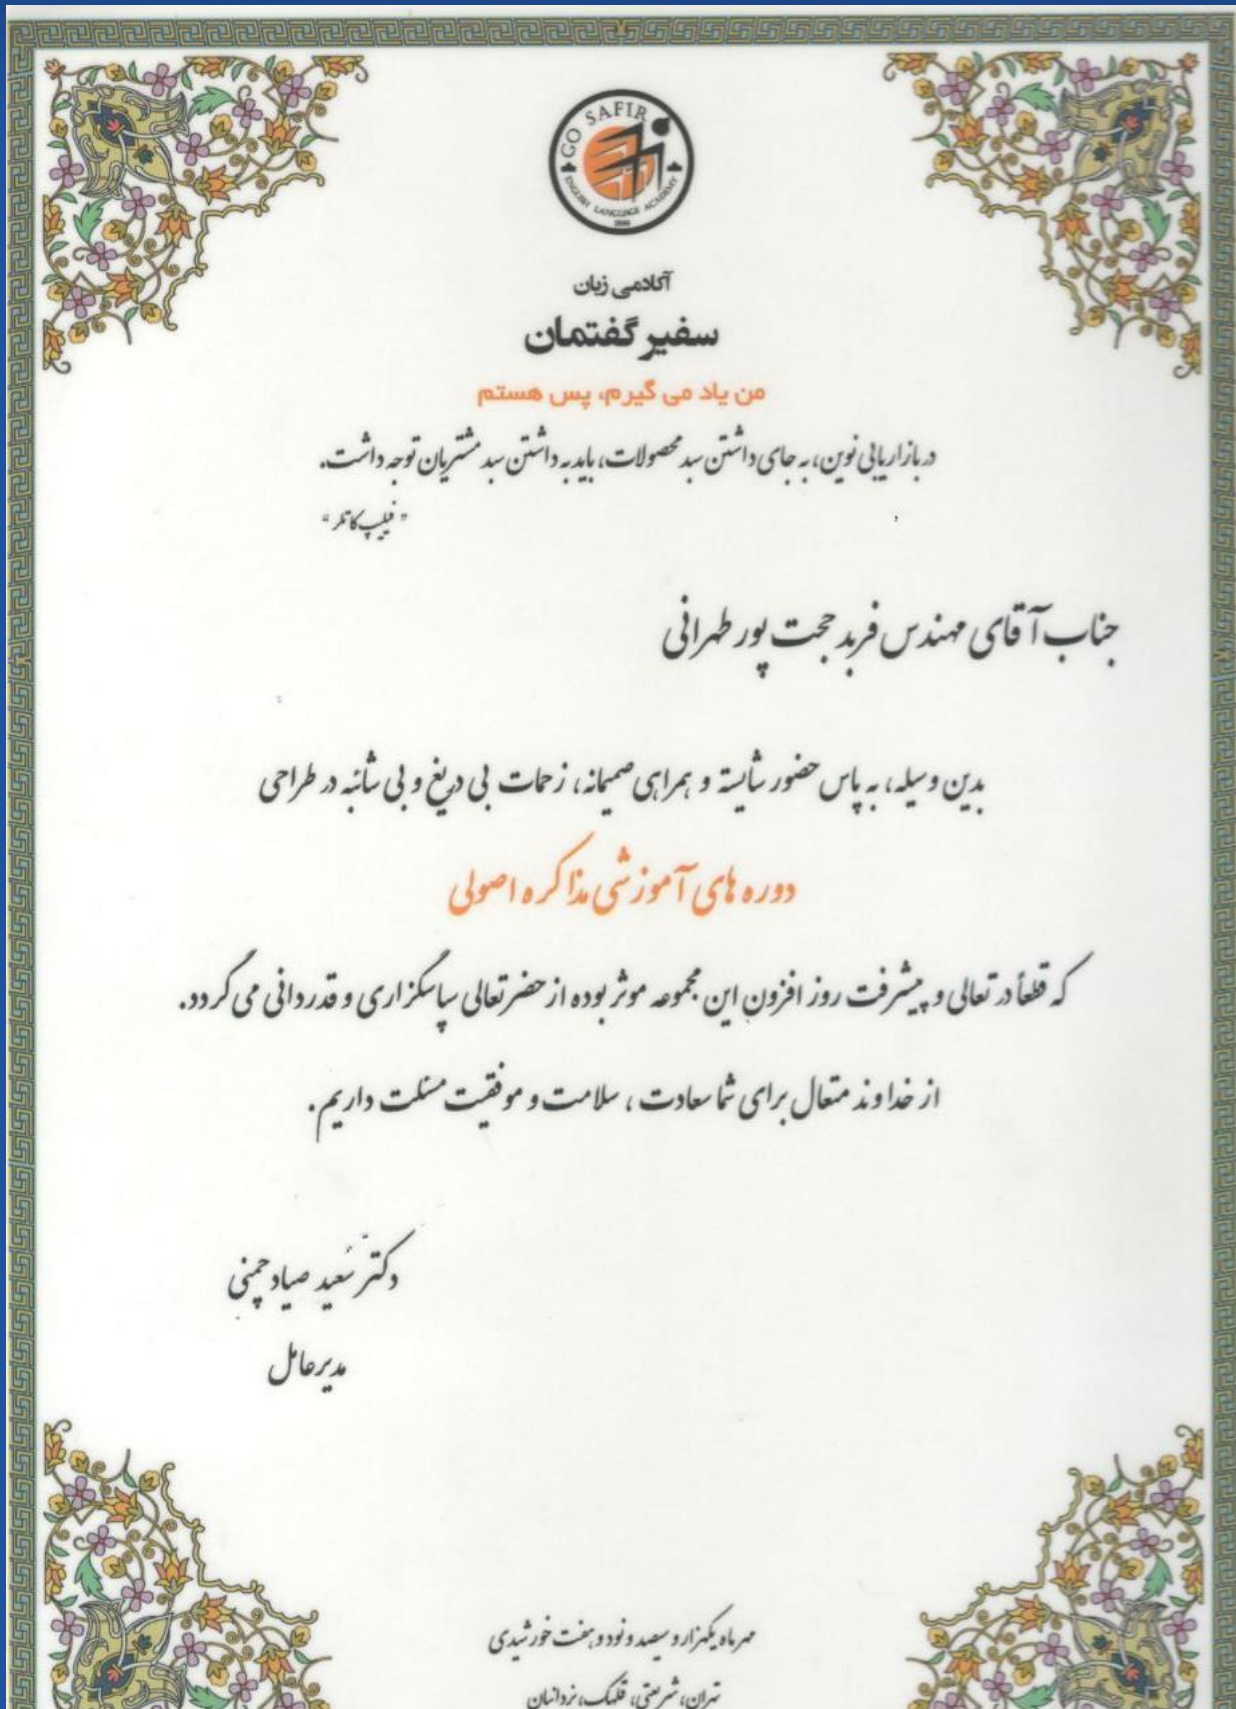 GO SAFIR
ENGLISH LANGUAGE ACADEMY
آکادمی زبان
سفیر گفتمان
من یاد می گیرم، پس هستم
در بازاریابی نوین، به جای داشتن سبد محصولات، باید به داشتن سبد مشتریان توجه داشت.
"فیلیپ کاتلر"
جناب آقای مهندس فربد حجت پور طهرانی
بدین وسیله، به پاس حضور شایسته و همراهی صمیمانه، زحمات بی دریغ و بی شائبه در طراحی
دوره های آموزشی مذاکره اصولی
که قطعاً در تعالی و پیشرفت روز افزون این مجموعه موثر بوده از حضرتعالی سپاسگزاری و قدردانی می گردد.
از خداوند متعال برای شما سعادت، سلامت و موفقیت مسئلت داریم.
دکتر سعید صیاد چمنی
مدیرعامل
مهر ماه یکهزار و سیصد و نود و هفت خورشیدی
تهران، شریعتی، قلهک، یزدانیان